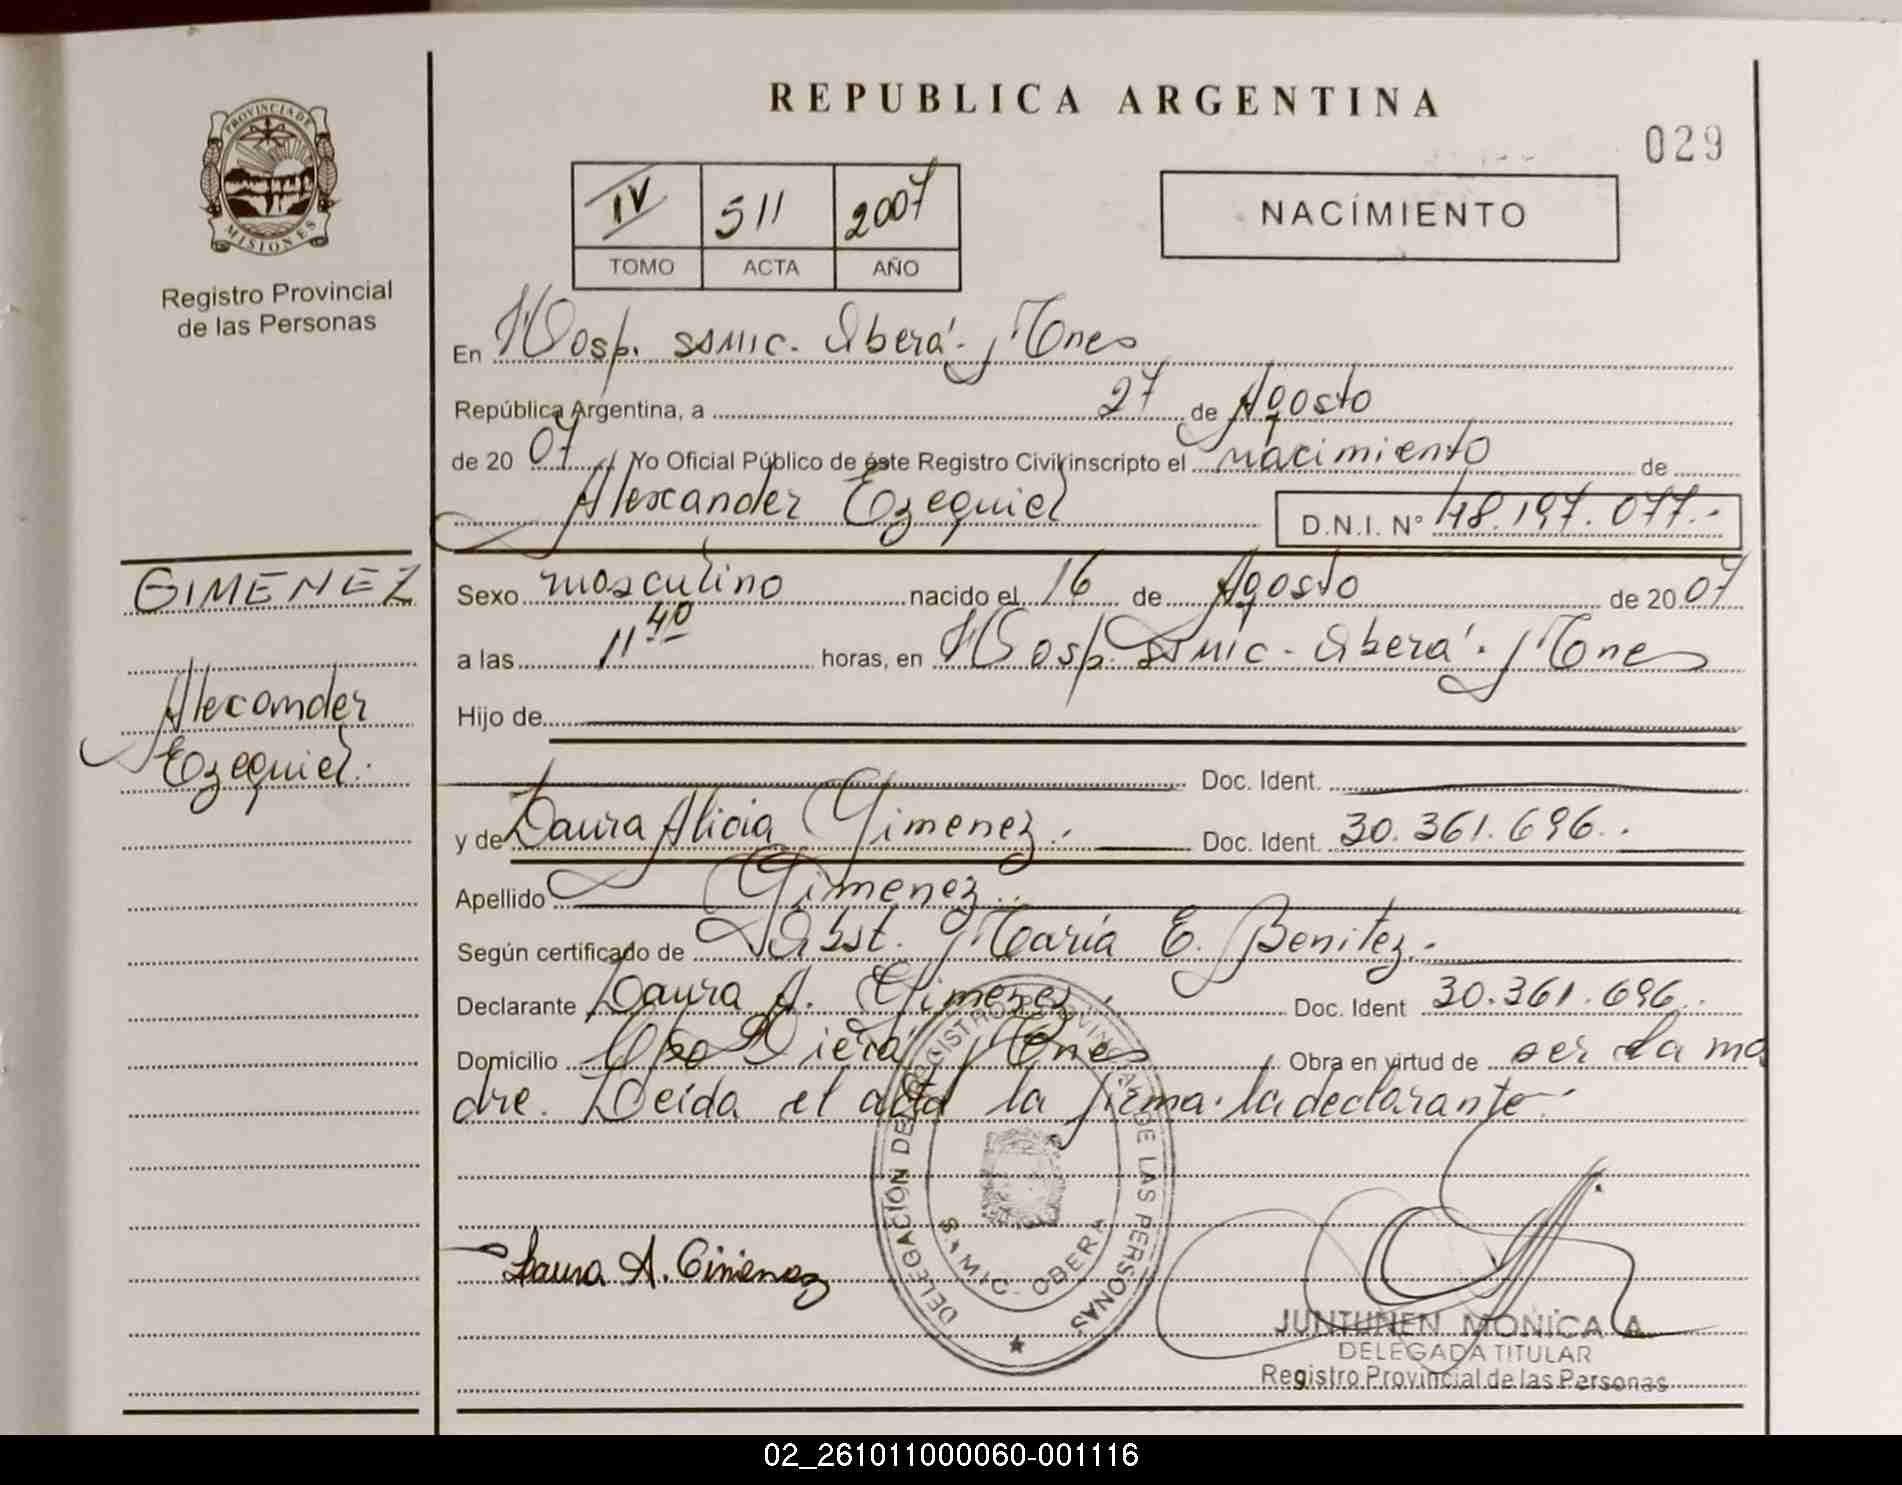 REPUBLICA ARGENTINA
029
PROVINCIA DE
MISIONES
Registro Provincial
de las Personas
IV 511 2007
TOMO ACTA AÑO
NACIMIENTO
En Hosp. SAMIC. Oberá. Mnes
República Argentina, a 27 de Agosto
de 20 07 Yo Oficial Público de éste Registro Civil inscripto el nacimiento de
Alexander Ezequiel D.N.I. N° 48.197.077.-
GIMENEZ
Alexander
Ezequiel.
Sexo masculino nacido el 16 de Agosto de 20 07
a las 11 40 horas, en Hosp. SAMIC. Oberá. Mnes
Hijo de
Doc. Ident.
y de Laura Alicia Gimenez. Doc. Ident. 30.361.696.
Apellido Gimenez.
Según certificado de Obst. María E. Benitez.
Declarante Laura A. Gimenez. Doc. Ident 30.361.696.
Domicilio Cpo Viera Mnes Obra en virtud de ser la ma
dre. Leída el acta la firma la declarante.
Laura A. Gimenez
DELEGACIÓN DEL REGISTRO PROVINCIAL DE LAS PERSONAS
SAMIC - OBERA
JUNTUNEN MONICA A.
DELEGADA TITULAR
Registro Provincial de las Personas
02_261011000060-001116